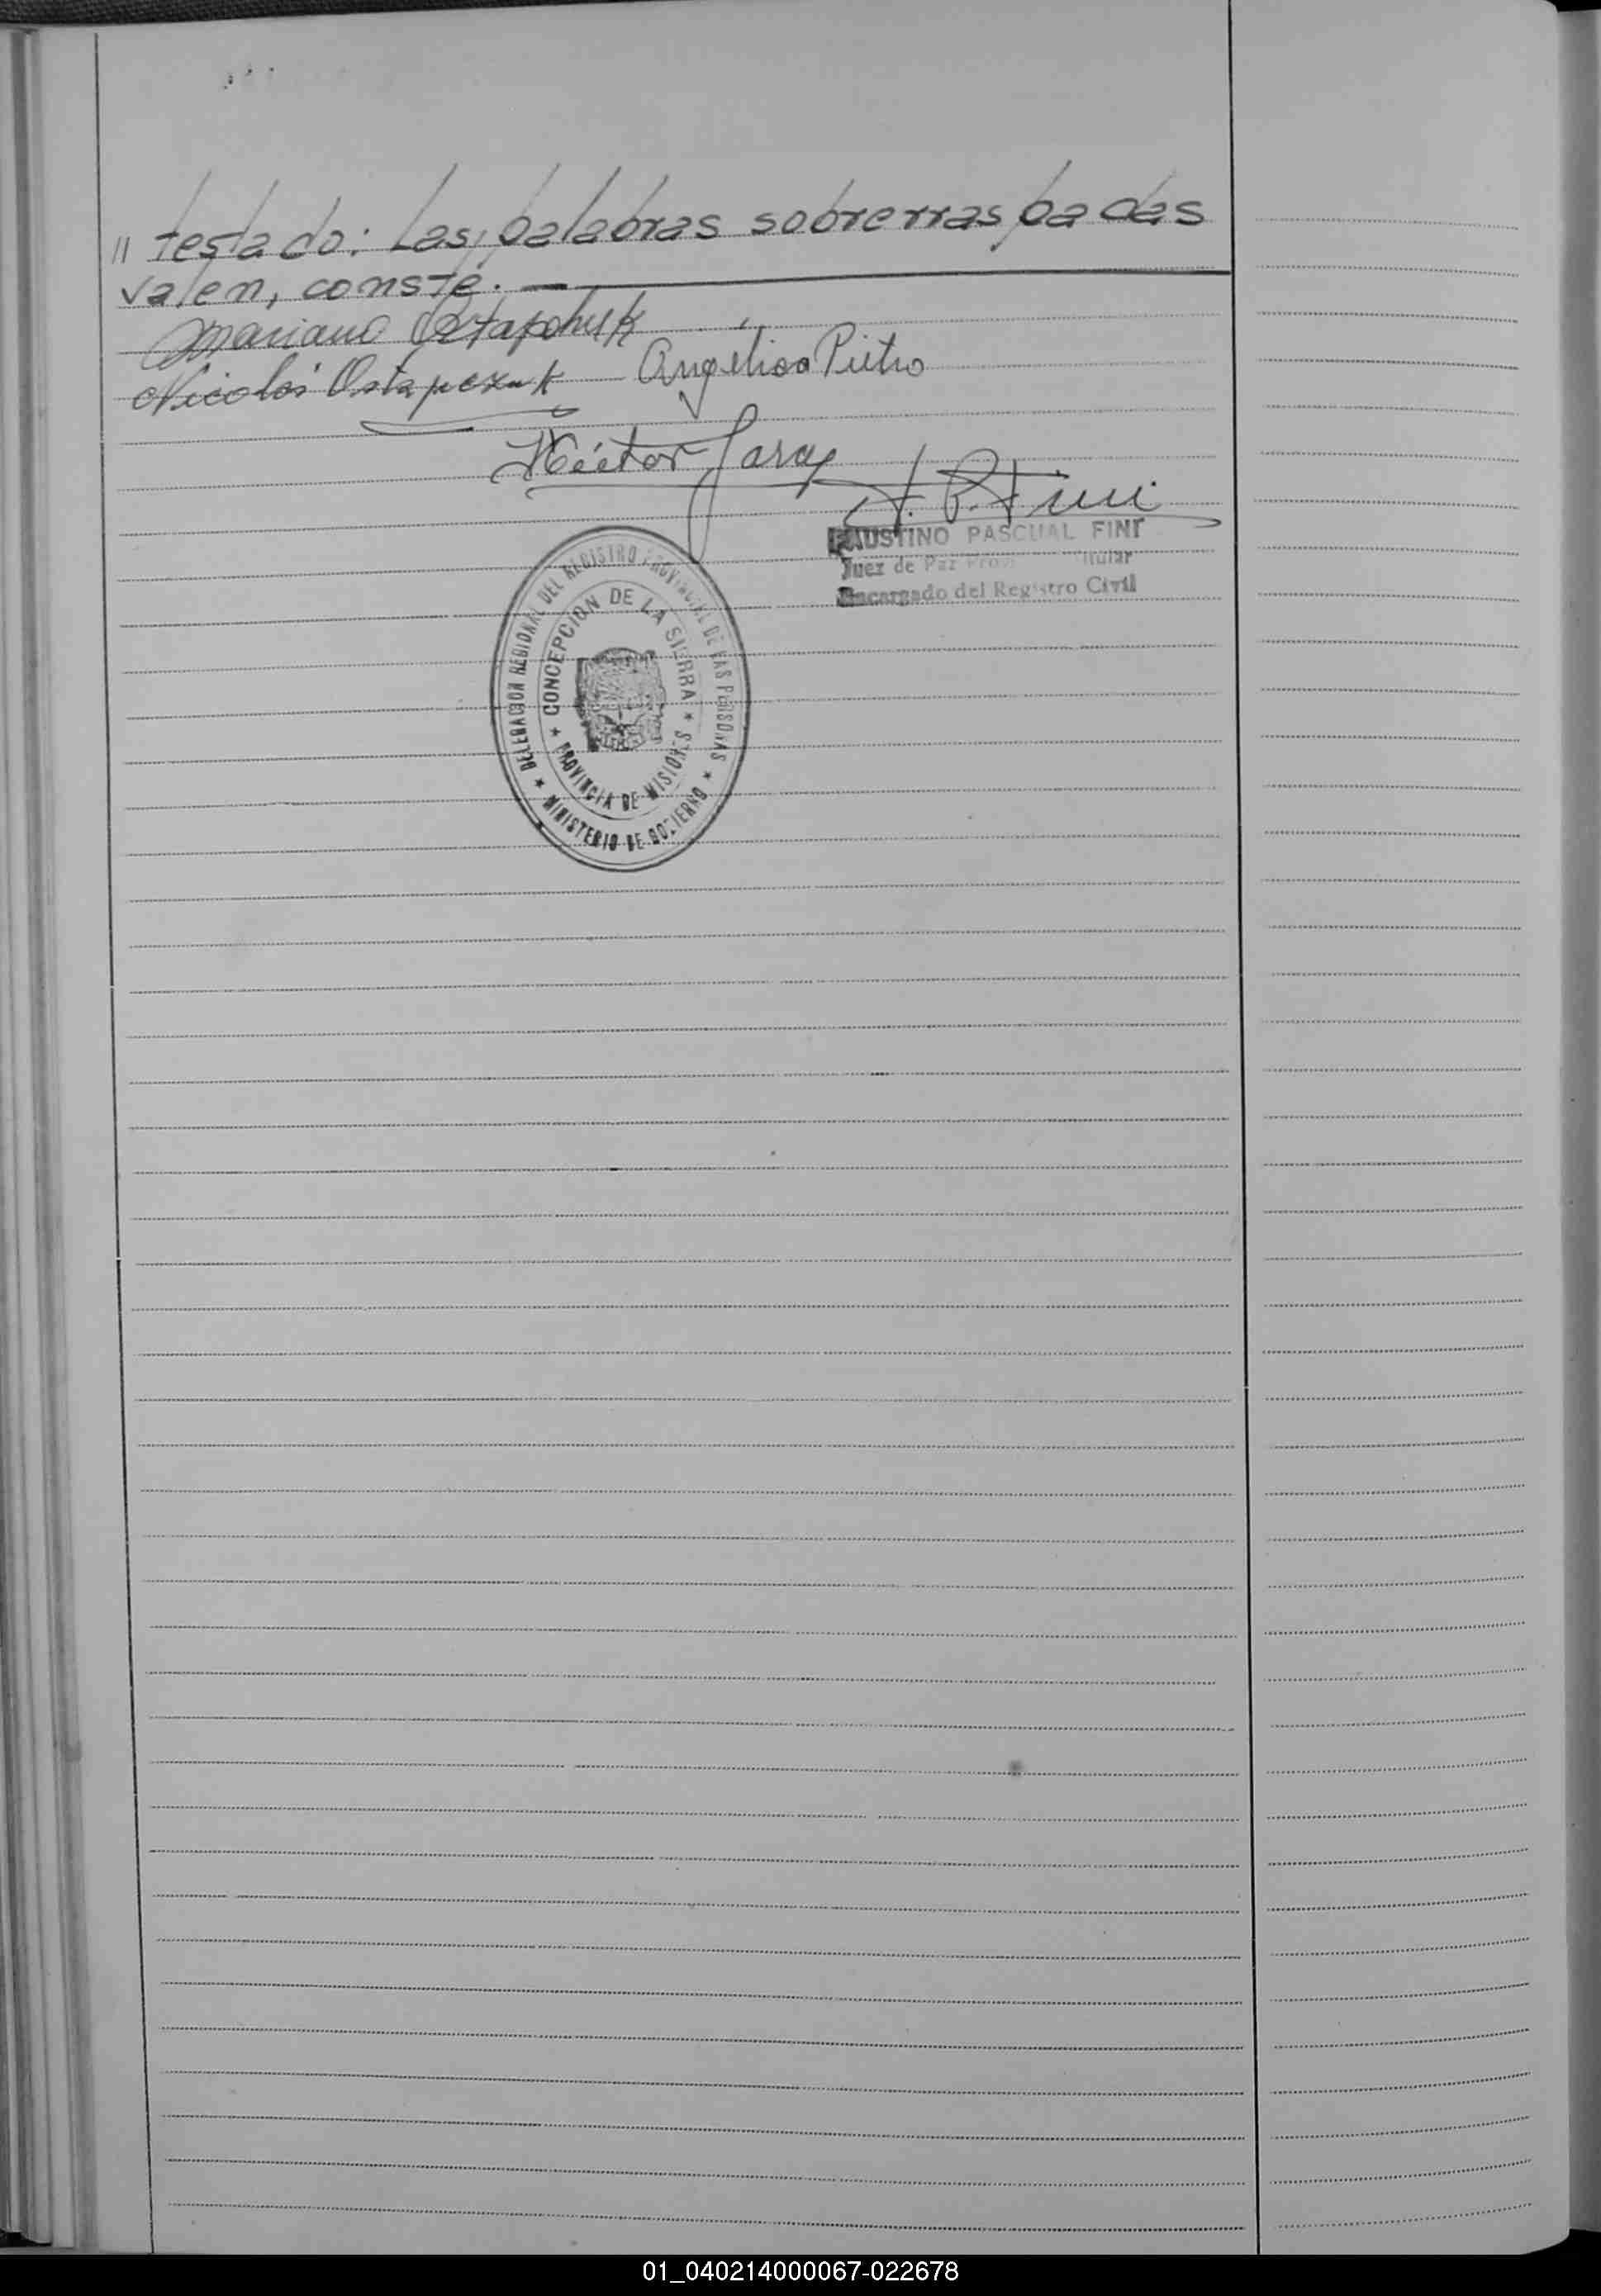 " testado: Las palabras sobrerraspadas
valen, conste. —
Mariano Ostapchuk
Nicolás Ostapczuk Angélica Pietro
Héctor Jara
F. P. Fini
FAUSTINO PASCUAL FINI
Juez de Paz Prov Titular
Encargado del Registro Civil
★ DELEGACION REGIONAL DEL REGISTRO PROVINCIAL DE LAS PERSONAS ★
MINISTERIO DE GOBIERNO
★ CONCEPCION DE LA SIERRA ★
PROVINCIA DE MISIONES
01_040214000067-022678